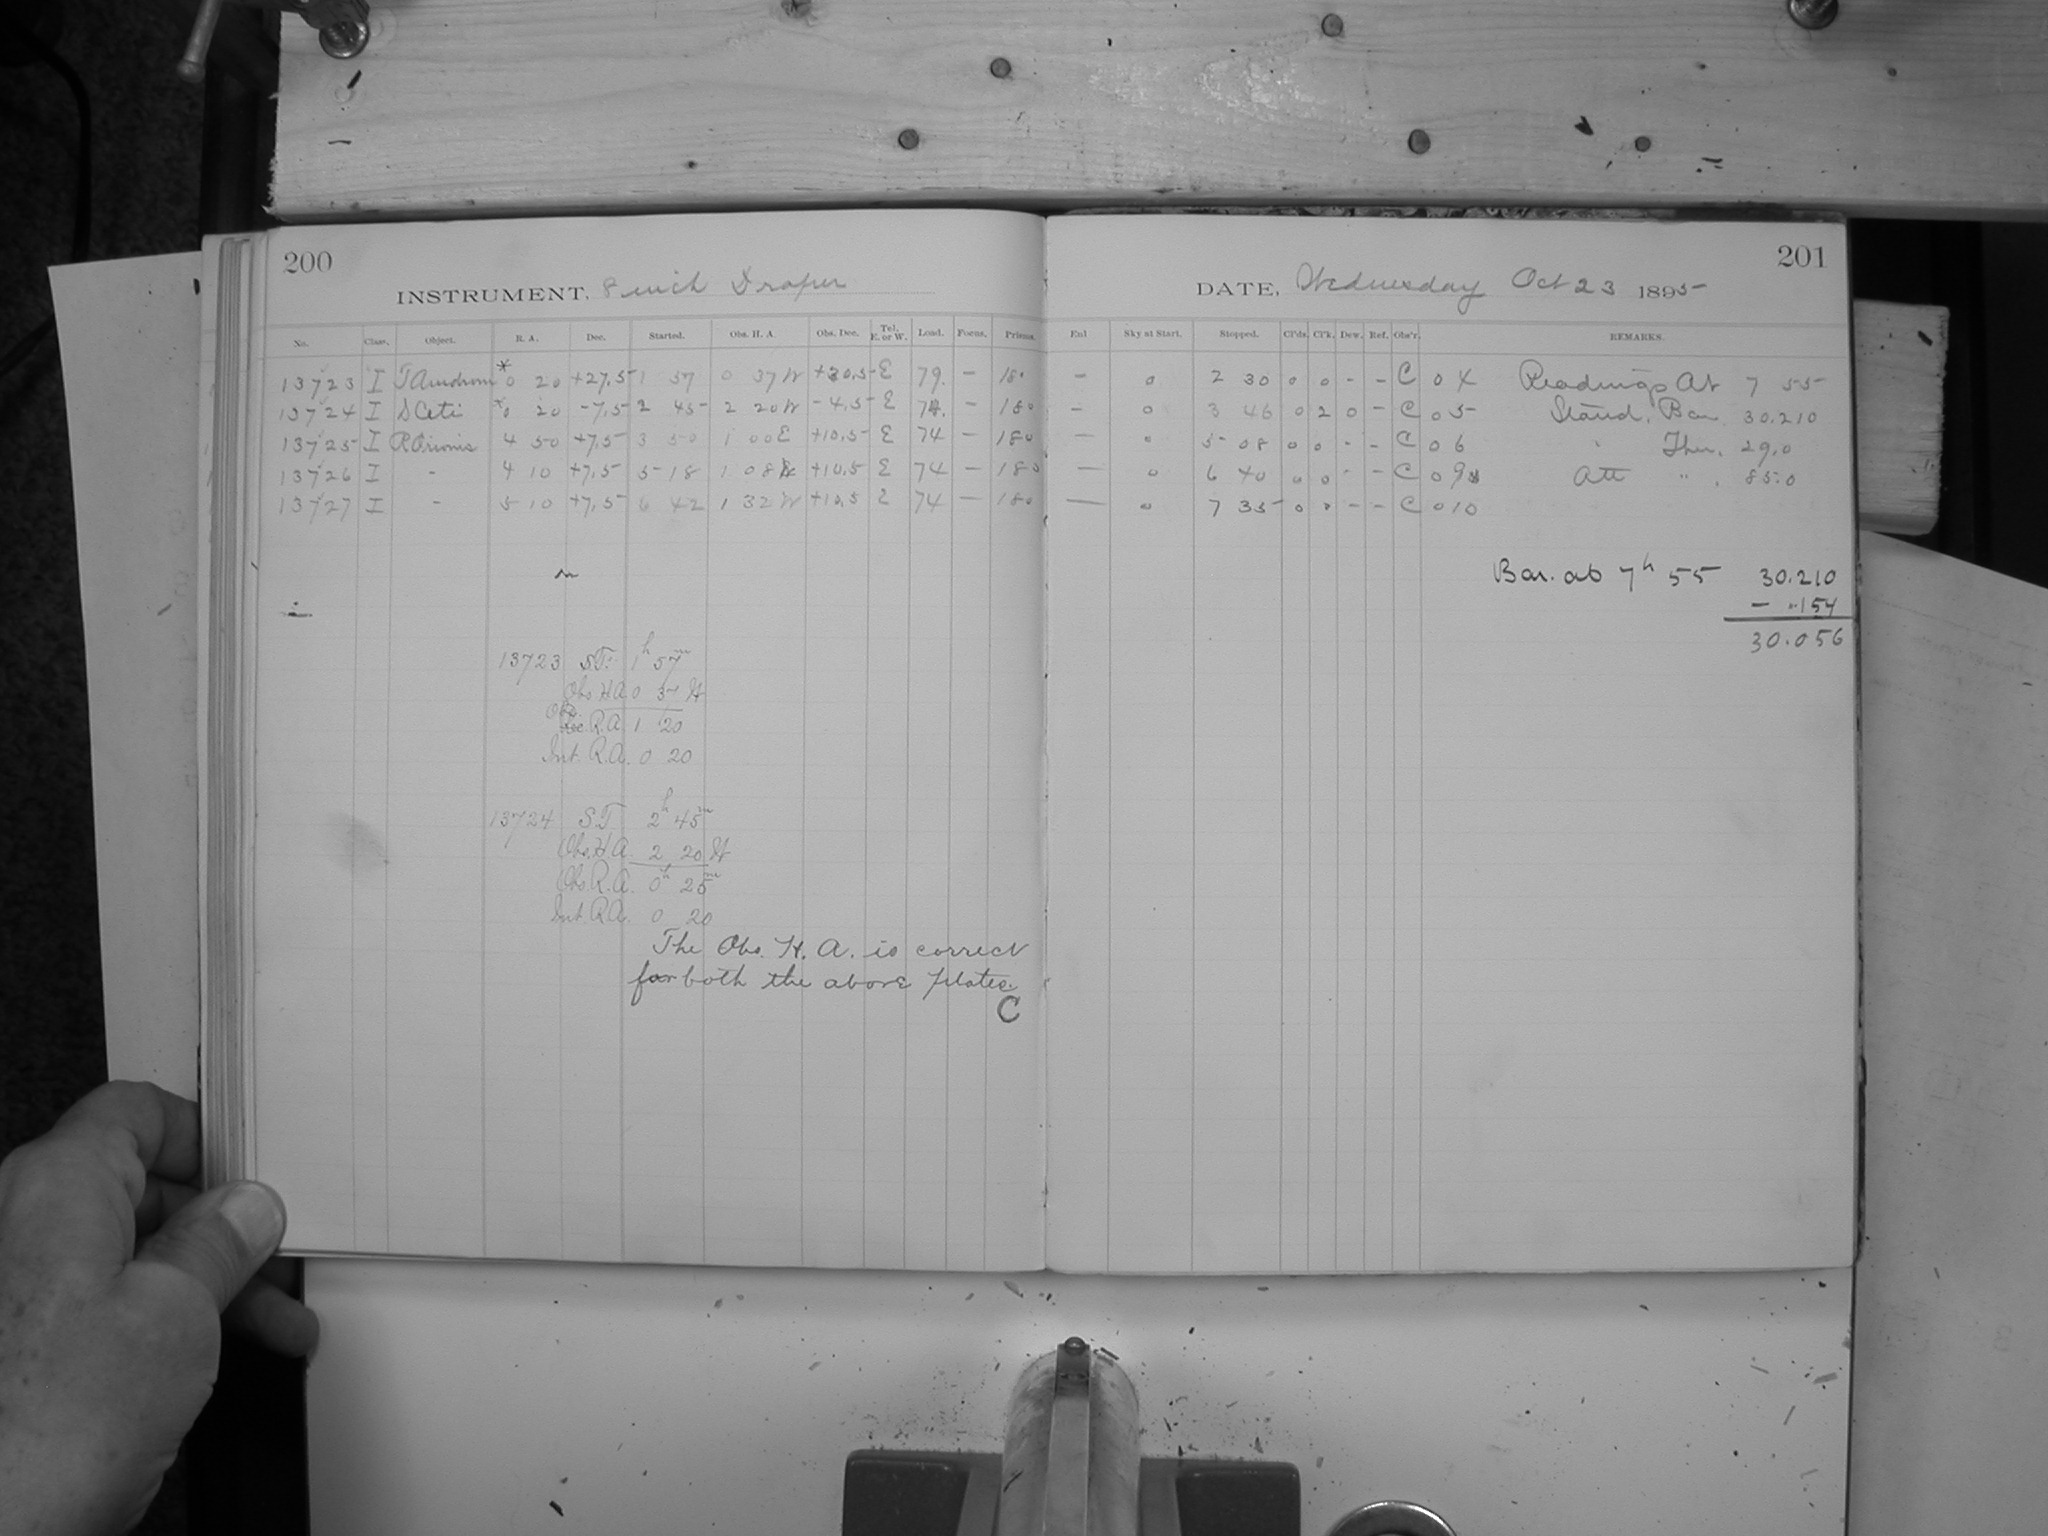 200
INSTRUMENT, 8 inch Draper
No. Class. Object. R. A. Dec. Started. Obs. H. A. Obs. Dec. Tel. E. or W. Load. Focus. Prisms.
13723 I T Androm * 0 20 +27,5 1 57 0 37 W +30,5 E 79. – 180
13724 I S Ceti * 0 20 -7,5 2 45 2 20 W -4,5 E 74. – 180
13725 I R Orionis 4 50 +7,5 3 50 1 00 E +10,5 E 74 – 180
13726 I - 4 10 +7,5 5 18 1 08 W +10,5 E 74 – 180
13727 I - 5 10 +7,5 6 42 1 32 W +10,5 E 74 – 180
13723 S.T. 1h 57m
Obs. H A 0 37 W
Obs. R.A. 1 20
Int. R.A. 0 20
13724 S.T 2h 45m
Obs. H A. 2 20 W
Obs. R.A. 0h 25m
Int. R.A. 0 20
The Obs. H. A. is correct
for both the above plates.
C
201
DATE, Wednesday Oct 23 1895
Enl Sky at Start. Stopped. Cl'ds. Cl'k. Dew. Ref. Obs'r. REMARKS.
– 0 2 30 0 0 - - C 04 Readings At 7 55
– 0 3 46 0 2 0 - C 05 Stand. Bar. 30.210
– 0 5 08 0 0 - - C 06 " Ther. 29.0
– 0 6 40 0 0 - - C 09 Att " . 85.0
– 0 7 35 0 0 - - C 010
Bar. at 7h 55 30.210
- .154
30.056